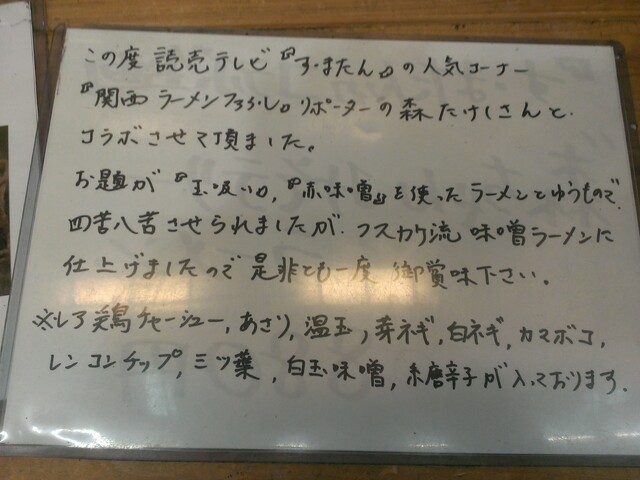 この度 読売テレビ『す・またん』の人気コーナー
『関西 ラーメンフらいし』リポーターの森たけしさんと
コラボさせて頂ました。
お題が『玉吸い』,『赤味噌』を使ったラーメンとゆうもので、
四苦八苦させられましたが、フスカケ流 味噌ラーメンに
仕上げましたので是非とも一度 御賞味下さい。
※レア鶏チャーシュー, あさり, 温玉, 芽ネギ, 白ネギ, カマボコ,
レンコンチップ, ミツ葉, 白玉味噌, 糸唐辛子が入っております。